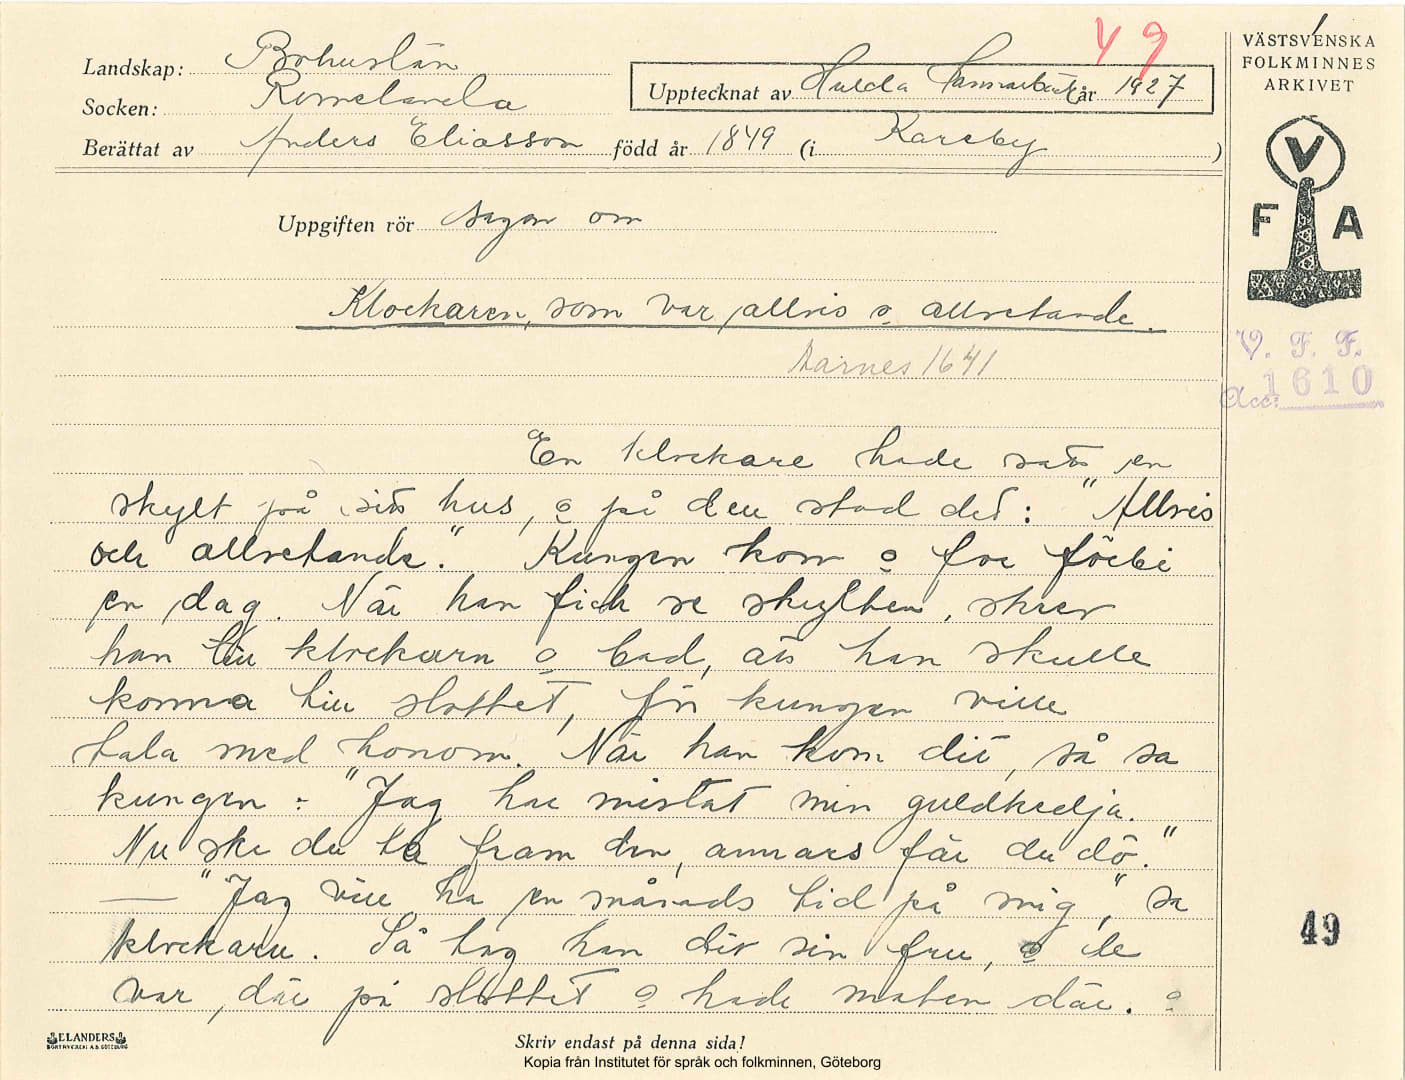 49
Landskap: Bohuslän
Socken: Romelanda
Upptecknat av Hulda år 1927
Berättat av Anders Eliasson född år 1849 (i Kareby)
Uppgiften rör sagan om
Klockaren, som var allvis o allvetande.
Aarnes 1641
En klockare hade satt en
skylt på sitt hus, o på den stod det: "Allvis
och allvetande." Kungen kom o for förbi
en dag. När han fick se skylten, skrev
han till klockarn o bad, att han skulle
komma till slottet, för kungen ville
tala med honom. När han kom dit, så sa
kungen: "Jag har mistat min guldkedja.
Nu ska du ta fram den, annars får du dö."
— "Jag vill ha en månads tid på mig," sa
klockarn. Så tog han dit sin fru, o de
var där på slottet o hade maten där. o
Skriv endast på denna sida!
Kopia från Institutet för språk och folkminnen, Göteborg
ELANDERS
BOKTRYCKERI A.B. GÖTEBORG
VÄSTSVENSKA
FOLKMINNES
ARKIVET
V
F A
V. F. F.
Acc: 1610
49